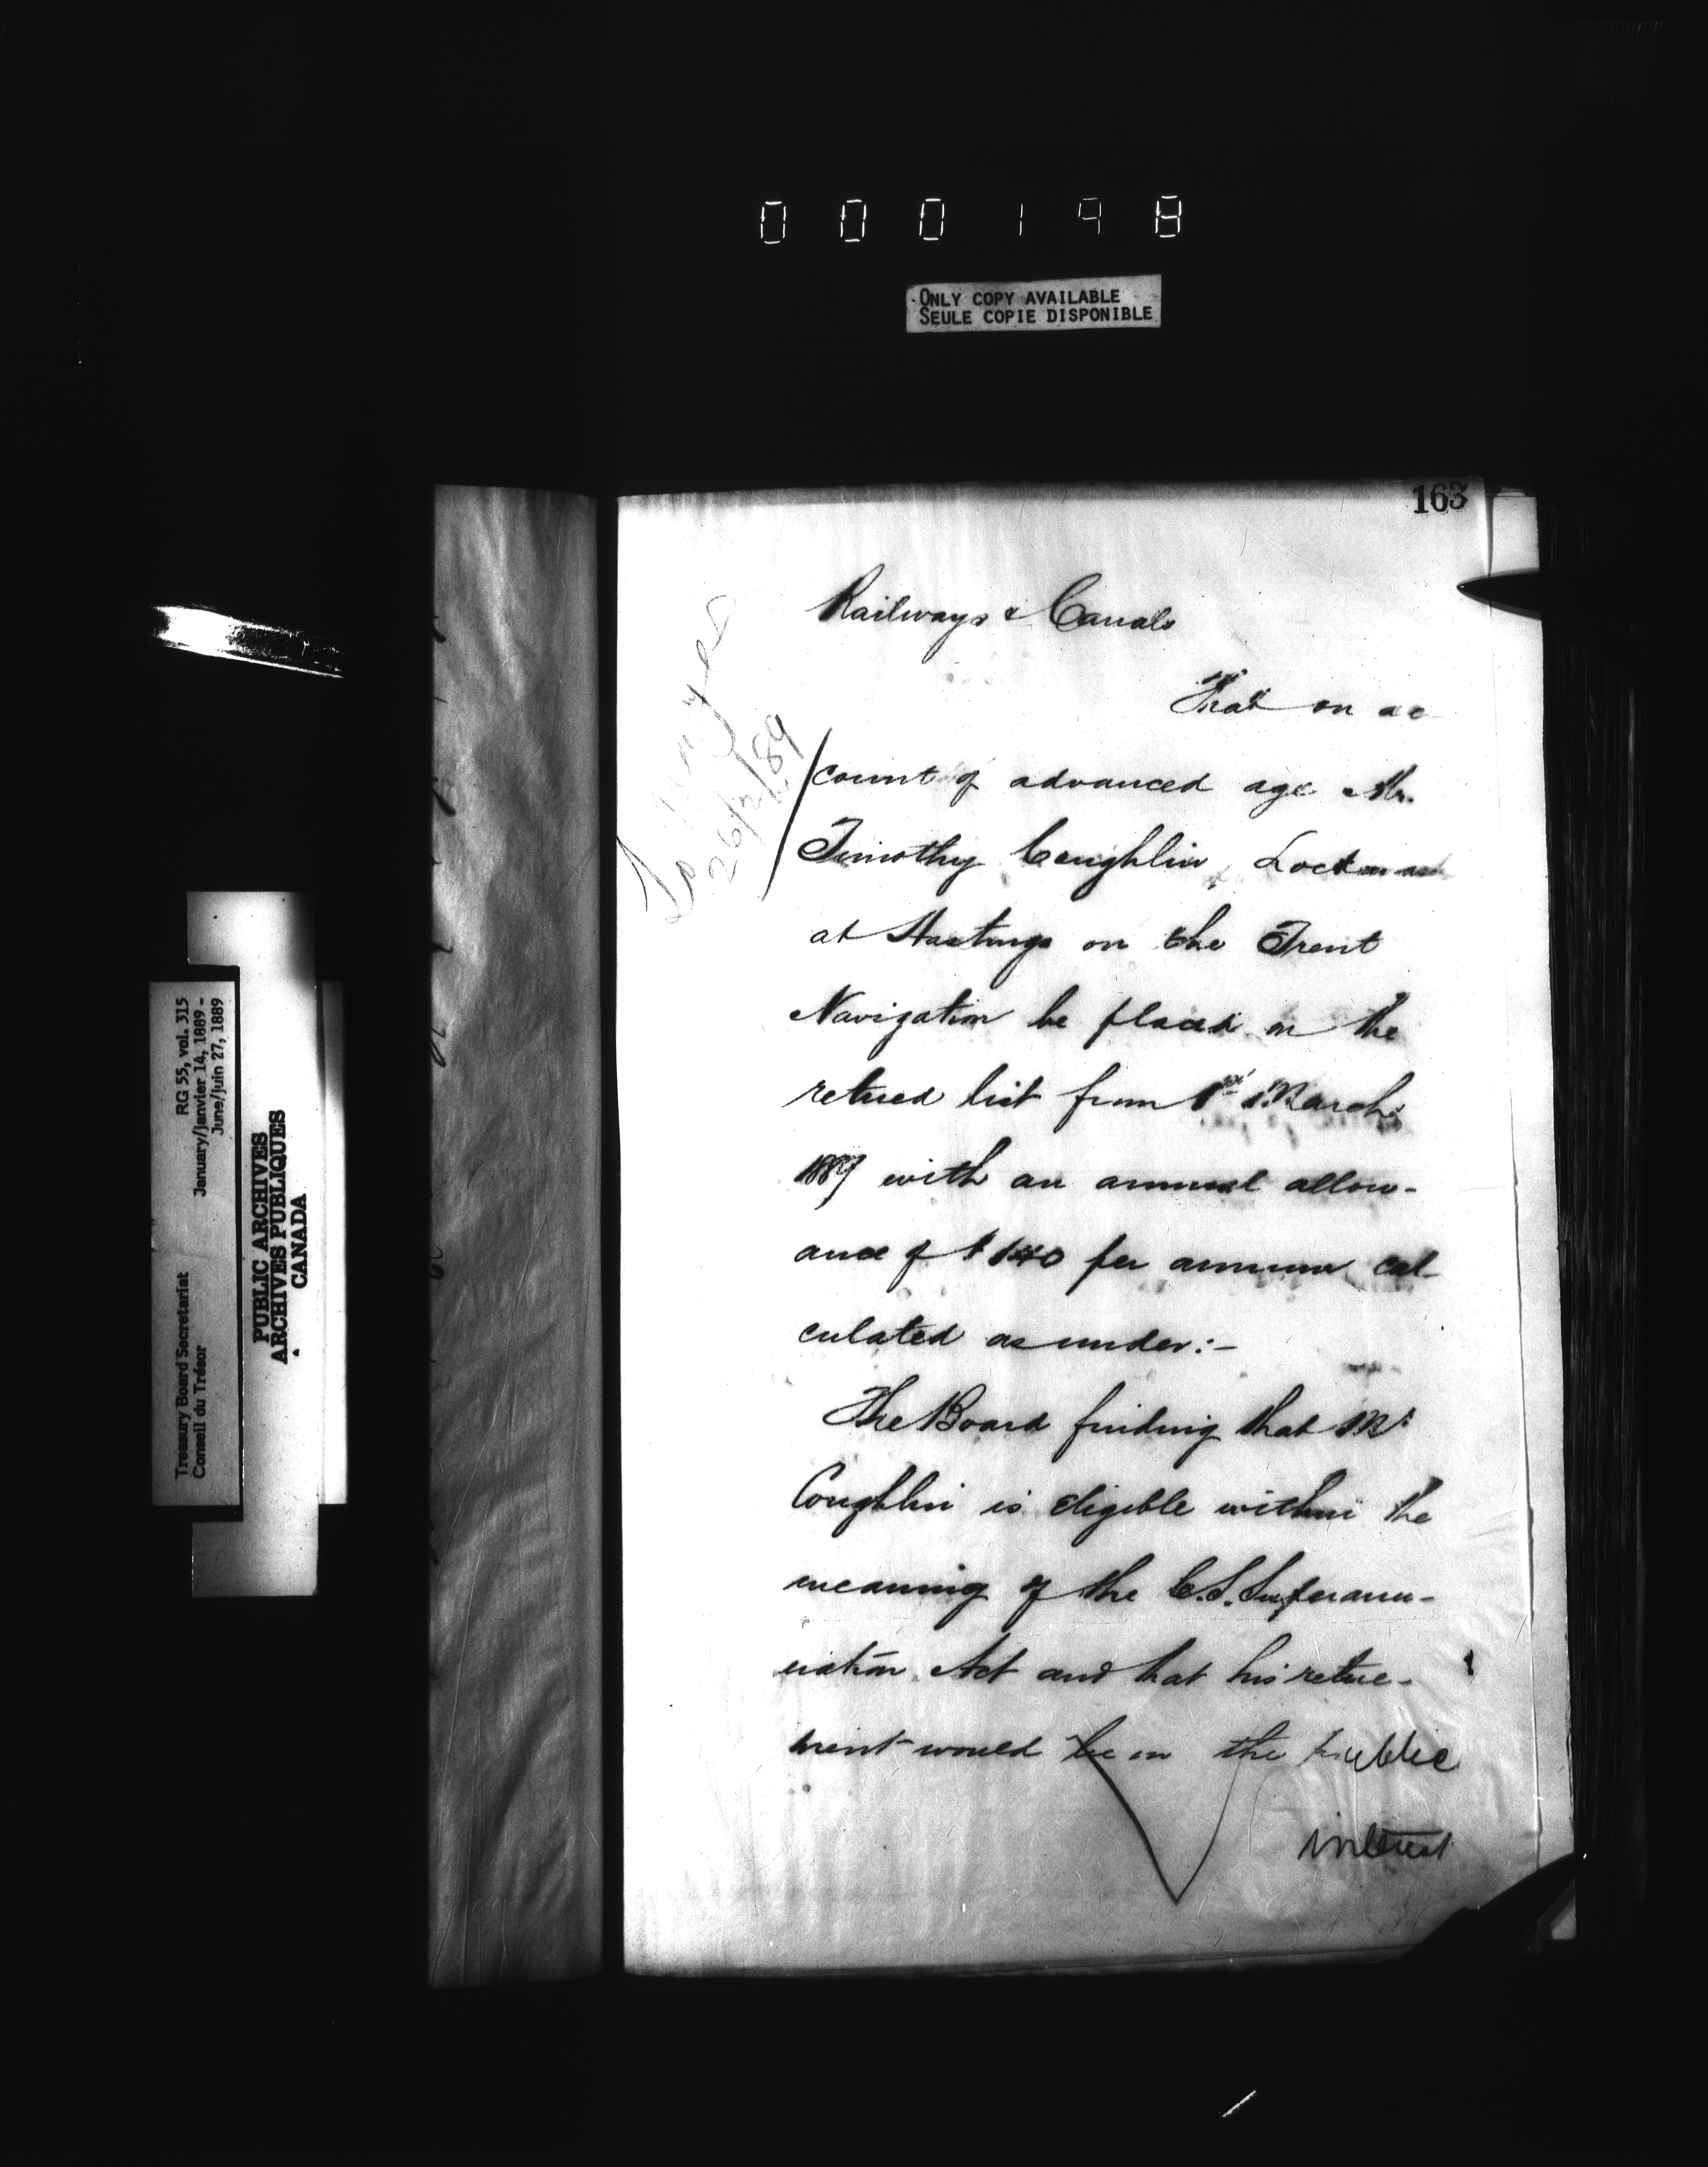 000198
ONLY COPY AVAILABLE
SEULE COPIE DISPONIBLE
163
Railways & Canals
That on ac-
count of advanced age Mr.
Timothy Coughlin, Lockman
at Hastings on the Trent
Navigation be placed on the
retired list from 1st March
1889 with an annual allow-
ance of $140 per annum cal-
culated as under:-
The Board finding that Mr
Coughlin is eligible within the
meaning of the C.S. Superannu-
uation Act and that his retire-
ment would be in the public
interest
26/2/89
RG 55, vol. 315
January/janvier 14, 1889 -
June/juin 27, 1889
Treasury Board Secretariat
Conseil du Trésor
PUBLIC ARCHIVES
ARCHIVES PUBLIQUES
CANADA